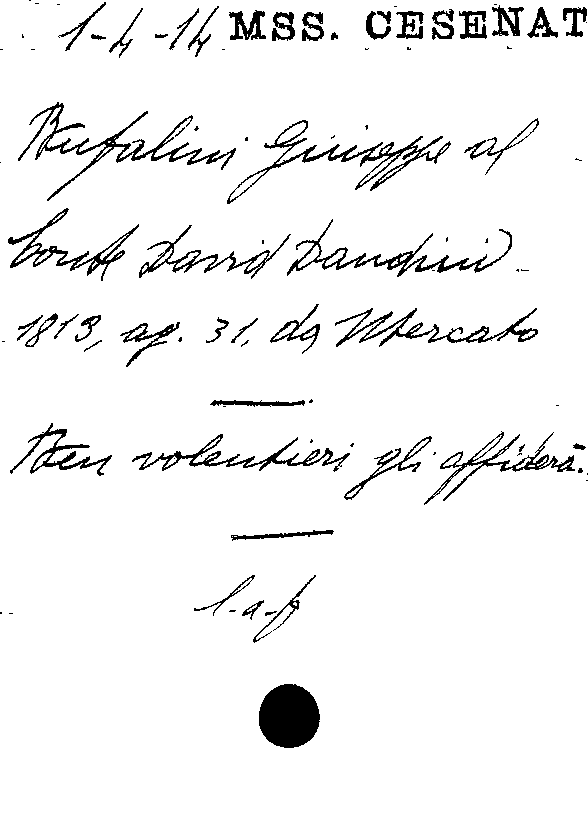 1-4-14 MSS. CESENAT
Bufalini Giuseppe al
Conte David Dandini
1813, ag. 31, da Mercato
Ben volentieri gli affiderà.
l-a-f